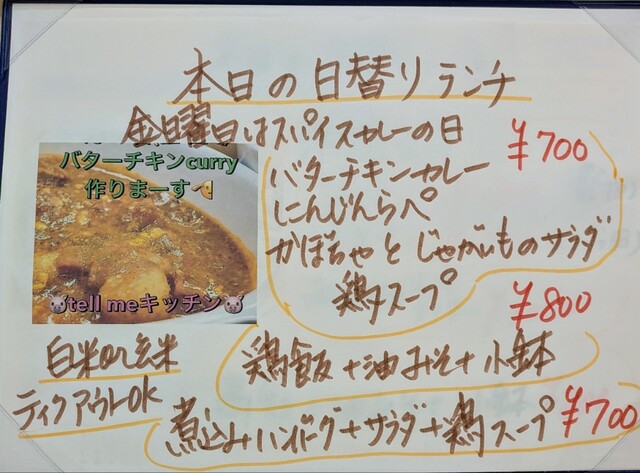 本日の日替りランチ
金曜日はスパイスカレーの日
¥700
バターチキンcurry
作りまーす
tell meキッチン
バターチキンカレー
にんじんらぺ
かぼちゃとじゃがいものサラダ
鶏スープ
¥800
白米or玄米
テイクアウトOK
鶏飯+油みそ+小鉢
煮込みハンバーグ+サラダ+鶏スープ ¥700